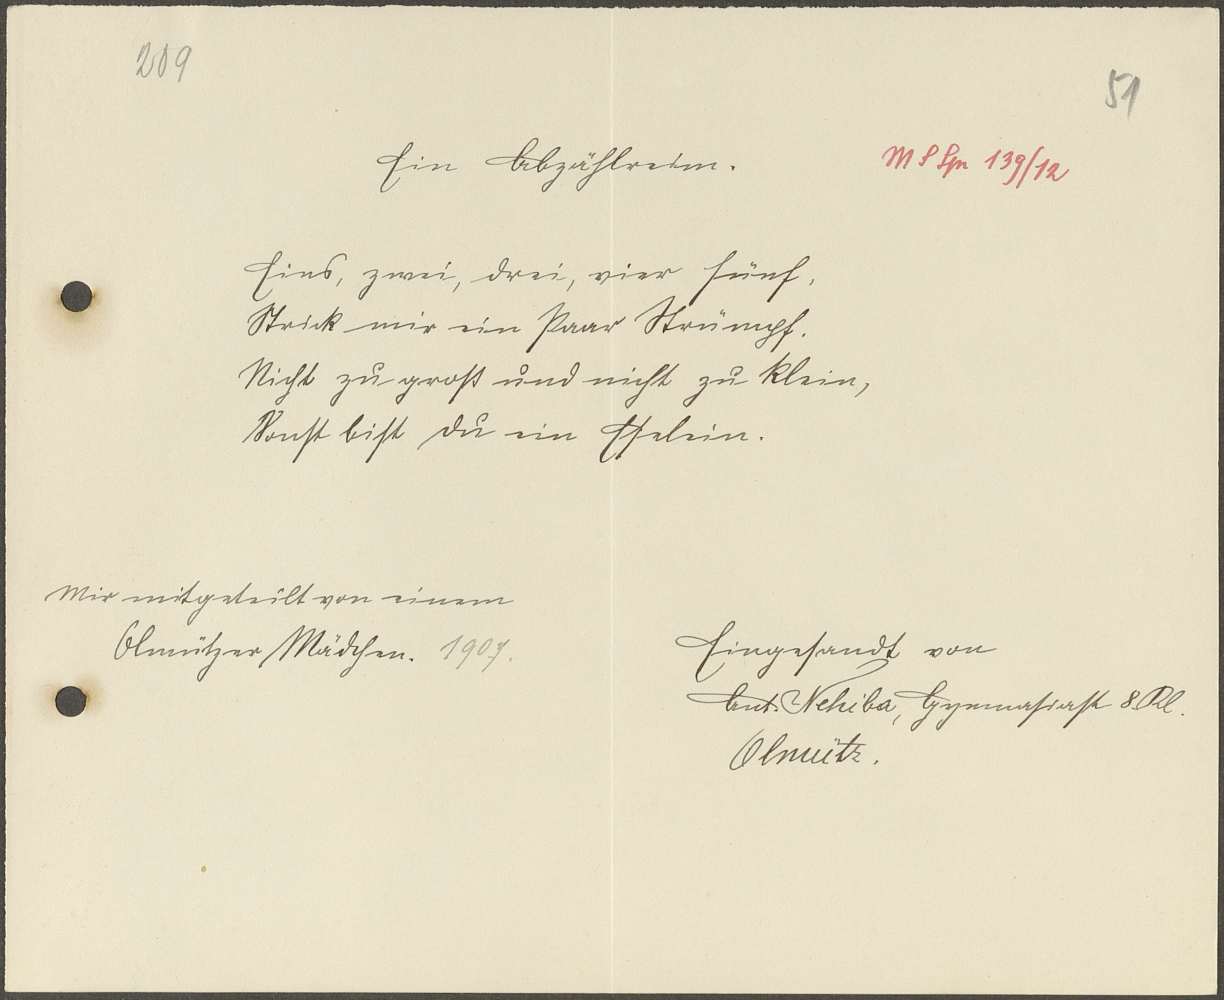 209
51
Ein Abzählreim.
MS Spr 139/12
Eins, zwei, drei, vier fünf,
Strick mir ein Paar Strümpf.
Nicht zu groß und nicht zu klein,
Sonst bist du ein Eselein.
Mir mitgeteilt von einem
Olmützer Mädchen. 1907.
Eingesandt von
Ant. Nehiba, Gymnasiast 8. Kl.
Olmütz.